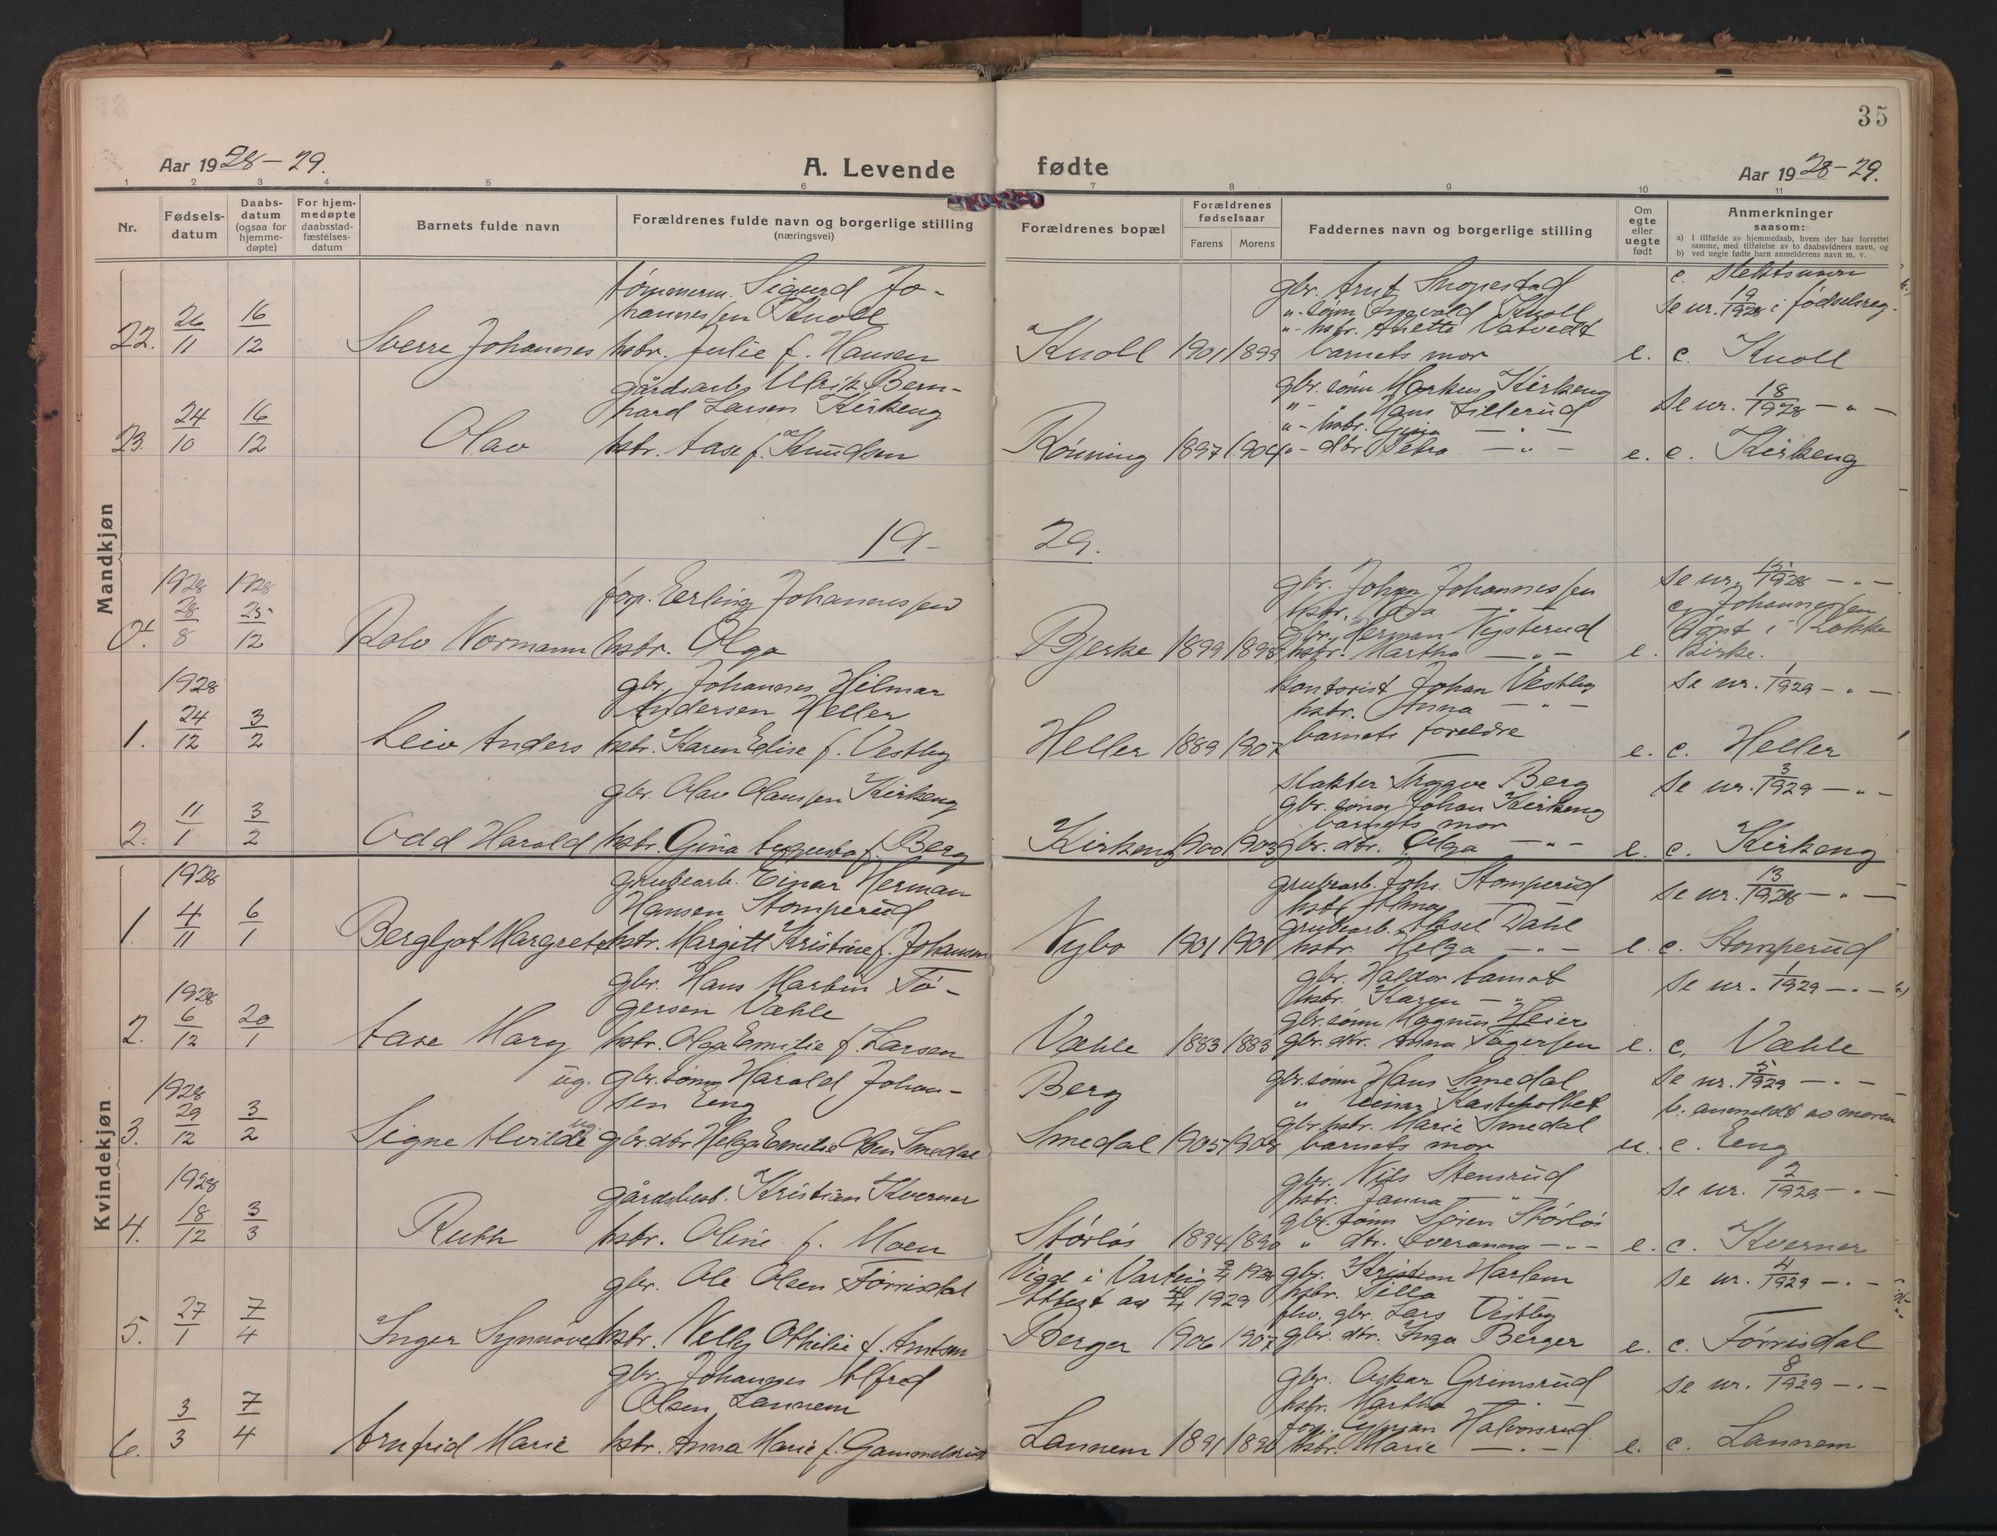 35
Aar 1928-29.
A. Levende
fødte
Aar 1928-29.
1 2 3 4 5 6 7 8 9 10 11
Nr.
Fødsels-
datum
Daabs-
datum
(ogsaa for
hjemme-
døpte)
For hjem-
medøpte
daabsstad-
fæstelses-
datum
Barnets fulde navn
Forældrenes fulde navn og borgerlige stilling
(næringsvei)
Forældrenes bopæl
Forældrenes
fødselsaar
Farens Morens
Faddernes navn og borgerlige stilling
Om
egte
eller
uegte
født
Anmerkninger
saasom:
a) I tilfælde av hjemmedaab, hvem der har forrettet
samme, med tilføielse av to daabsvidners navn, og
b) ved uegte fødte barn anmelderens navn m. v.
Mandkjøn
22. 26/11 16/12 Sverre Johannes
tømmerm. Sigurd Jo-
hannessen Knoll
hstr. Julie f. Hansen
Knoll 1901 1899
gbr. Arnt Snopestad
"- sønn Ingvald Knoll
"- hstr. Anette Vatvedt
barnets mor
e.
c. slektsnavn
Se nr. 19/1928 i fødselsreg.
c. Knoll
23. 24/10 16/12 Olav
gårdsarb. Ulrik Bern-
hard Larsen Kirkeng
hstr. Aase f. Knudsen
Rønning 1897 1904
gbr. sønn Markus Kirkeng
"- " Hans Lillerud
"- hstr. Gina - " -
"- dtr. Petra - " -
e.
Se nr. 18/1928 - " -
c. Kirkeng
19 29.
0. 1928 28/8 1928 25/12 Rolv Normann
forp. Erling Johannessen
hstr. Olga
Bjerke 1899 1898
gbr. Johan Johannessen
hstr. Ida - " -
gbr. Herman Nysterud
hstr. Martha - " -
e.
Se nr. 15/1928 - " -
c. Johannessen
Døpt i Rakke-
kirke.
1. 1928 24/12 3/2 Leiv Anders
gbr. Johannes Hilmar
Andersen Heller
hstr. Karen Elise f. Vestby
Heller 1889 1907
Kontorist Johan Vestby
hstr. Anna - " -
barnets foreldre
e.
Se nr. 1/1929 - " -
c. Heller
2. 11/1 3/2 Odd Harald
gbr. Olav Olaussen Kirkeng
hstr. Gina Augusta f. Berg
Kirkeng 1900 1903
slakter Trygve Berg
gbr. sønn Johan Kirkeng
barnets mor
gbr. dtr. Olga - " -
e.
Se nr. 3/1929 - " -
c. Kirkeng
Kvindekjøn
1. 1928 4/11 6/1 Bergljot Margrete
grubearb. Einar Herman
Hansen Stomperud
hstr. Margitt Kristine f. Johansen
Nybo 1901 1901
grubearb. Johs. Stomperud
hstr. Hanna
grubearb. Aksel Dahl
hstr. Helga - " -
e.
Se nr. 13/1928 - " -
c. Stomperud
2. 1928 6/12 20/1 Aase Mary
gbr. Hans Martin Tø-
gersen Væhle
hstr. Olga Emilie f. Larsen
Væhle 1883 1883
gbr. Haldor Aamot
hstr. Karen - " -
gbr. sønn Magnus Heier
gbr. dtr. Anna Tøgersen
e.
Se nr. 1/1929 - " -
c. Væhle
3. 1928 29/12 3/2 Signe Alvilde
ug. gbr. sønn Harald Johan-
sen Eng
ug. gbr. dtr. Helga Emilie Olsen Smedal
Berg
Smedal 1905 1908
gbr. sønn Hans Smedal
" Einar Kasteholtet
gbr. hstr. Marie Smedal
barnets mor
u.
Se nr. 5/1929 - " -
b. anmeldt av moren
c. Eng
4. 1928 18/12 3/3 Ruth
gårdsbest. Kristian Kverner
hstr. Oline f. Moen
Størløs 1894 1890
gbr. Nils Stensrud
hstr. Janna "
gbr. sønn Søren Størløs
" dtr. - " -
e.
Se nr. 2/1929 - " -
c. Kverner
5. 27/1 7/4 Inger Synnøve
gbr. Ole Olsen Tørrisdal
hstr. Nelly Othilie f. Arntsen
Vigde i Varteig
Attest av 4/4 1929
Berger 1906 1907
gbr. Kristian Harlem
hstr. Silla
fhv. gbr. Lars Vestby
gbr. dtr. Inga Berger
e.
Se nr. 4/1929 - " -
c. Tørrisdal
6. 3/3 7/4 Arnfrid Marie
gbr. Johannes Alfred
Olsen Lannem
hstr. Anna Marie f. Gammelsrud
Lannem 1891 1890
gbr. Oskar Grimsrud
hstr. Martha
forp. Halvorsrud
hstr. Marie - " -
e.
Se nr. 8/1929 - " -
c. Lannem